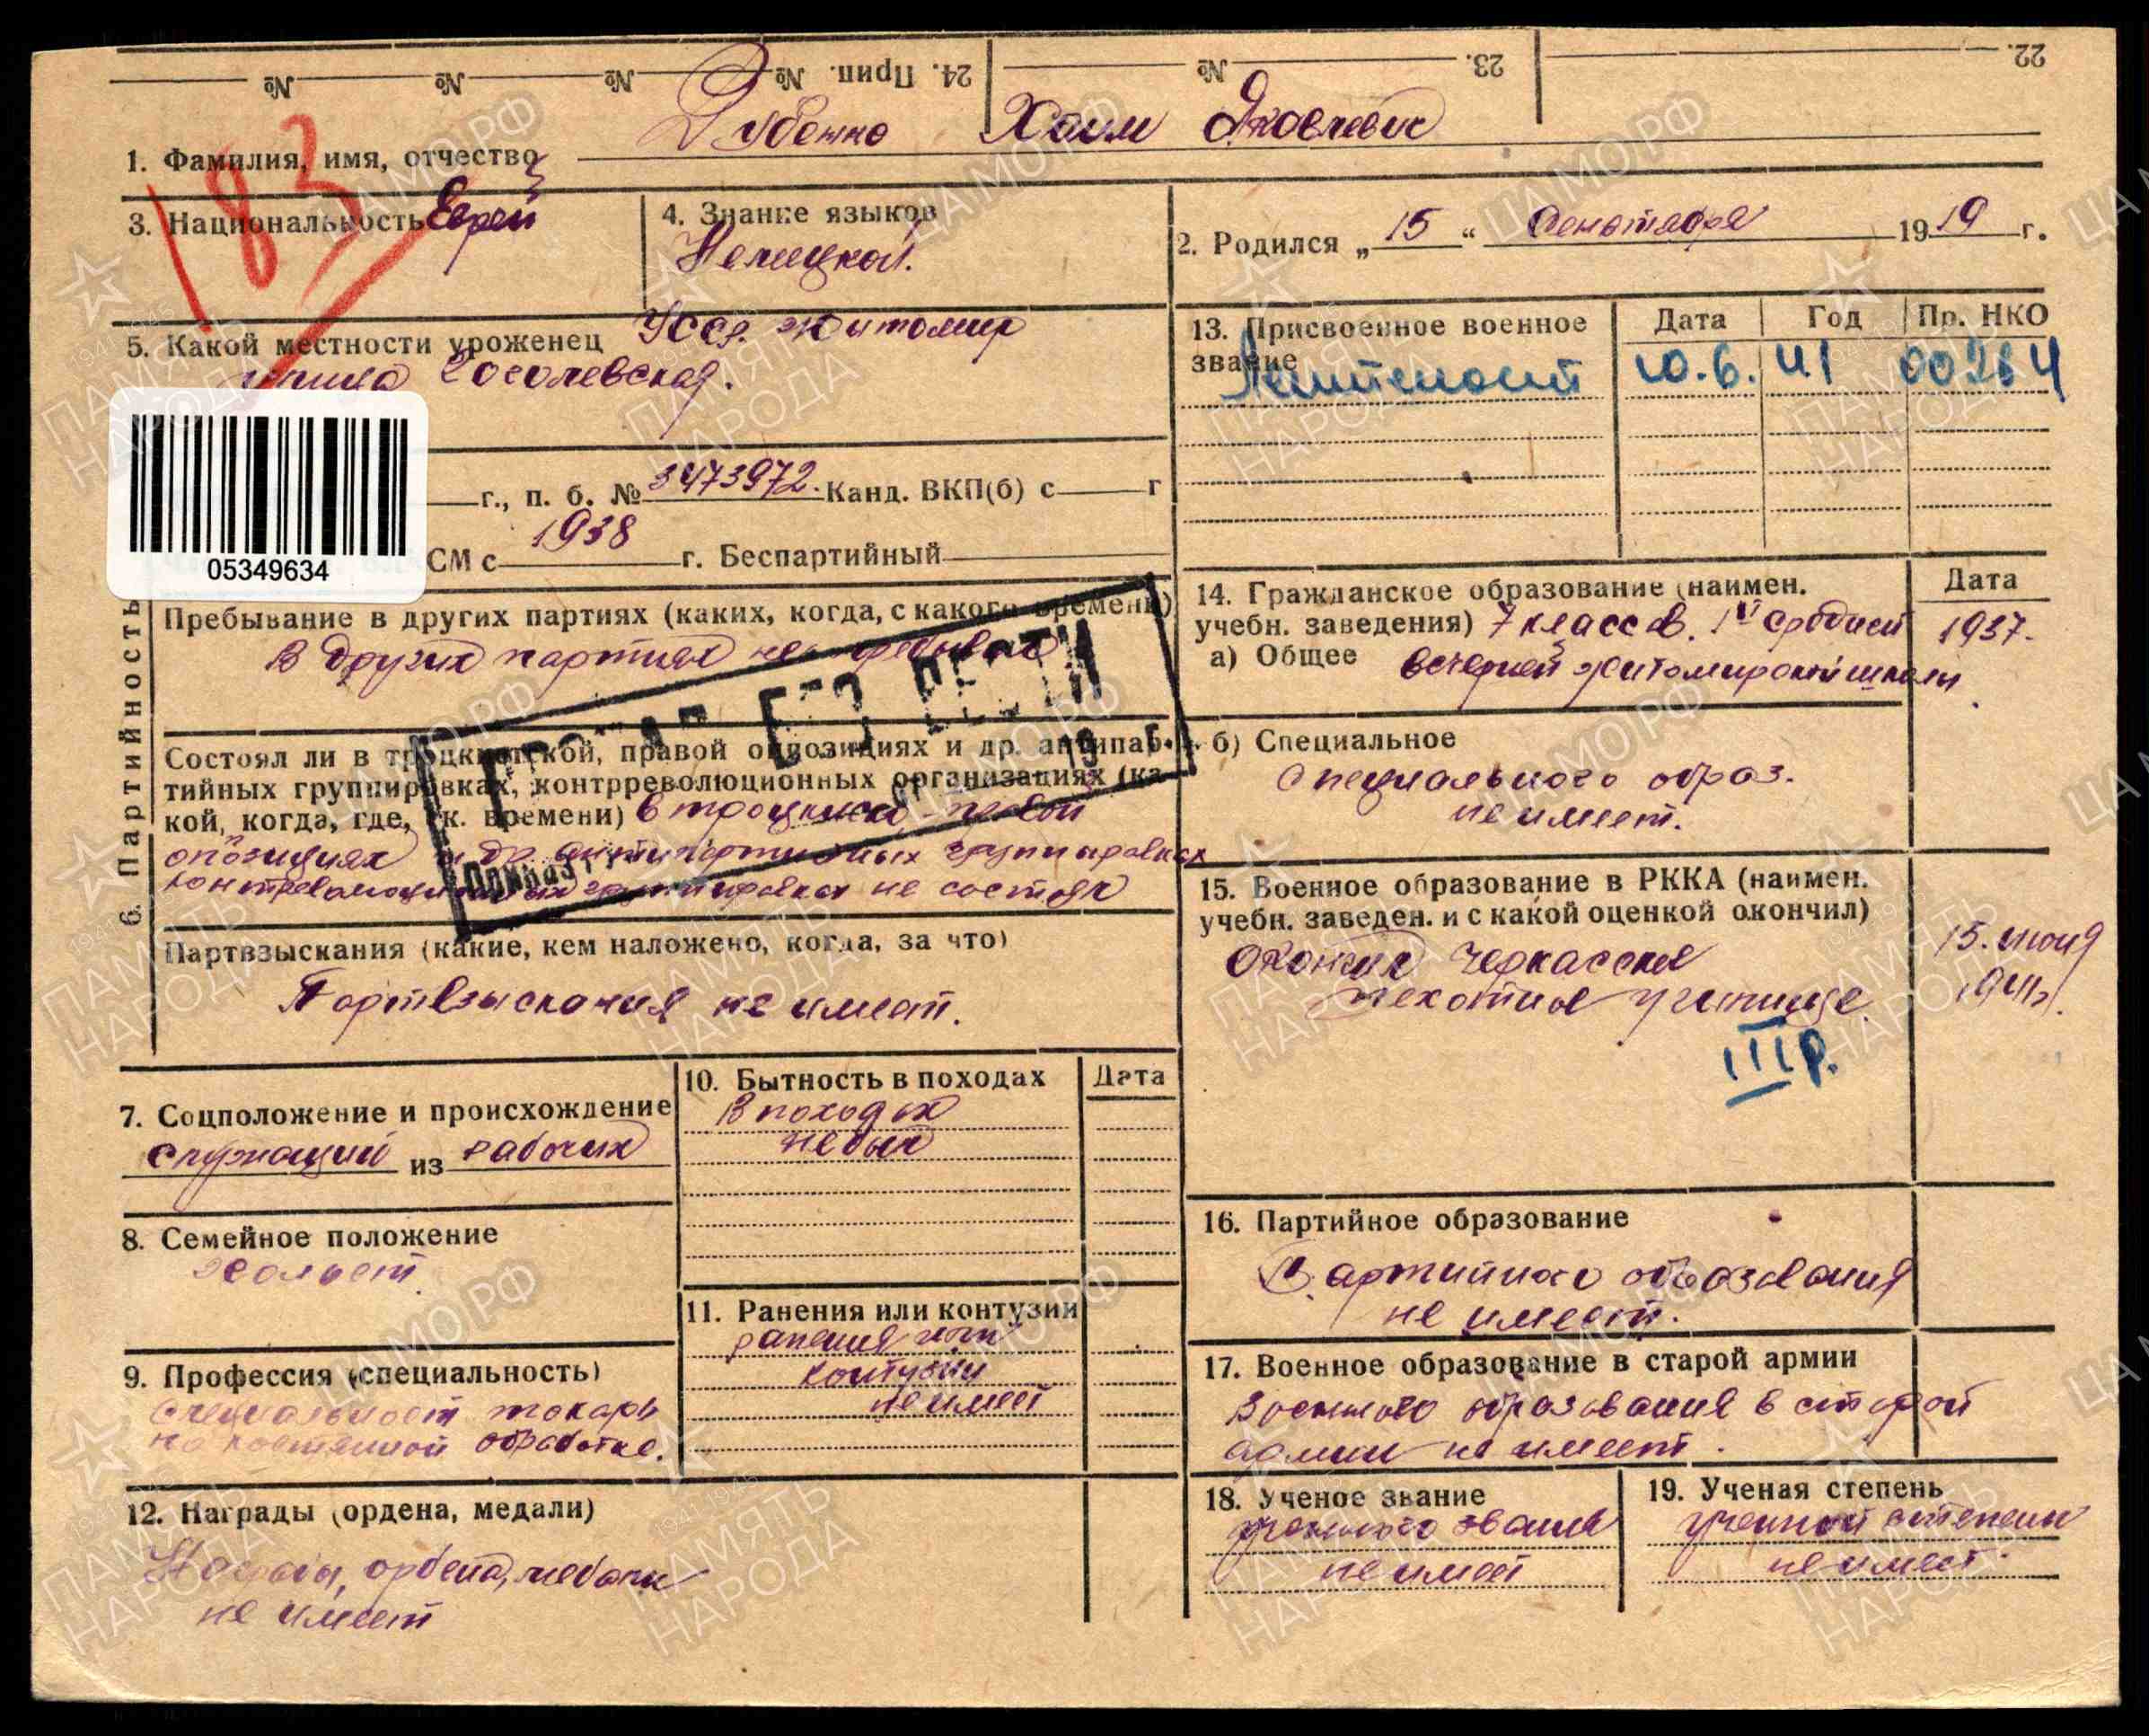 22.
23. №
24. Прип. № № № №
1. Фамилия, имя, отчество Дубенко Хаим Яковлевич
183
3. Национальность Еврей
4. Знание языков
Немецкой.
2. Родился „ 15 “ Сентября 19 19 г.
5. Какой местности уроженец УССР. Житомир
улица Гоголевская.
13. Присвоенное военное звание
Дата Год Пр. НКО
Лейтенант 10.6. 41 00264
05349634
6. Партийность
г., п. б. № 3473972. Канд. ВКП(б) с г
СМ с 1938 г. Беспартийный
Пребывание в других партиях (каких, когда, с какого времени)
В других партиях не пребывал
ПРОПАЛ БЕЗ ВЕСТИ
Приказ
19 г.
Состоял ли в троцкистской, правой оппозициях и др. антипар-
тийных группировках, контрреволюционных организациях (ка-
кой, когда, где, к. времени) в троцкиско правой
опозициях и др. антипартийных группировках
контрреволюционных группировках не состоял
Партвзыскания (какие, кем наложено, когда, за что)
Партвзыскания не имеет.
14. Гражданское образование (наимен.
учебн. заведения) 7 классов. средней
а) Общее вечерней житомирской школы
Дата
1937.
б) Специальное
Специального образ.
не имеет.
15. Военное образование в РККА (наимен.
учебн. заведен. и с какой оценкой окончил)
Окончил Черкасское
пехотное училище.
IIIр.
15. июня
1941г.
7. Соцположение и происхождение
служащий из рабочих
8. Семейное положение
Холост
9. Профессия (специальность)
специальност токарь
по обработке.
10. Бытность в походах
Дата
В походах
не был
11. Ранения или контузии
ранения нет
контузии
не имеет
12. Награды (ордена, медали)
Награды, ордена, медали
не имеет
16. Партийное образование
Партийного образования
не имеет.
17. Военное образование в старой армии
Военного образования в старой
армии не имеет.
18. Ученое звание
ученного звания
не имеет
19. Ученая степень
ученной степени
не имеет.
ЦАМО.РФ
ПАМЯТЬ
НАРОДА
1941 1945